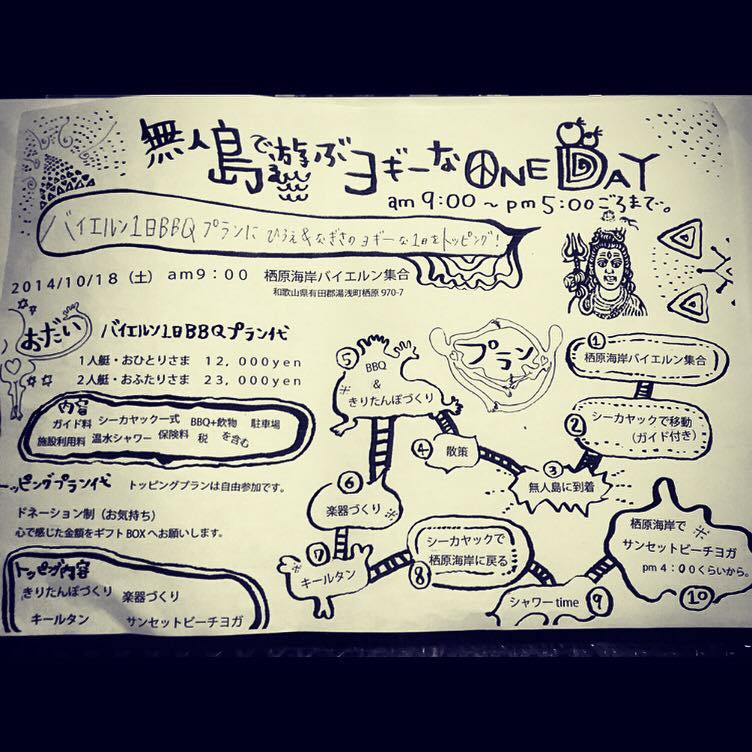 無人島で遊ぶヨギーなONE DAY
am 9:00 〜 pm 5:00 ごろまで。
バイエルン1日BBQプランに ひろえ&なぎさのヨギーな1日をトッピング!
2014/10/18（土） am9：00 栖原海岸バイエルン集合
和歌山県有田郡湯浅町栖原 970-7
おだい
バイエルン1日BBQプラン代
1人艇・おひとりさま 12,000yen
2人艇・おふたりさま 23,000yen
内容
ガイド料 シーカヤック一式 BBQ+飲物 駐車場
施設利用料 温水シャワー 保険料 税 を含む
ッピングプラン代 トッピングプランは自由参加です。
ドネーション制（お気持ち）
心で感じた金額をギフトBOXへお願いします。
トッピング内容
きりたんぽづくり 楽器づくり
キールタン サンセットビーチヨガ
プラン
① 栖原海岸バイエルン集合
② シーカヤックで移動
（ガイド付き）
③ 無人島に到着
④ 散策
⑤ BBQ
&
※きりたんぽづくり
⑥ 楽器づくり※
⑦ ※キールタン
⑧ シーカヤックで
栖原海岸に戻る
シャワーtime ⑨
栖原海岸で ※
サンセットビーチヨガ
pm 4：00くらいから。
⑩